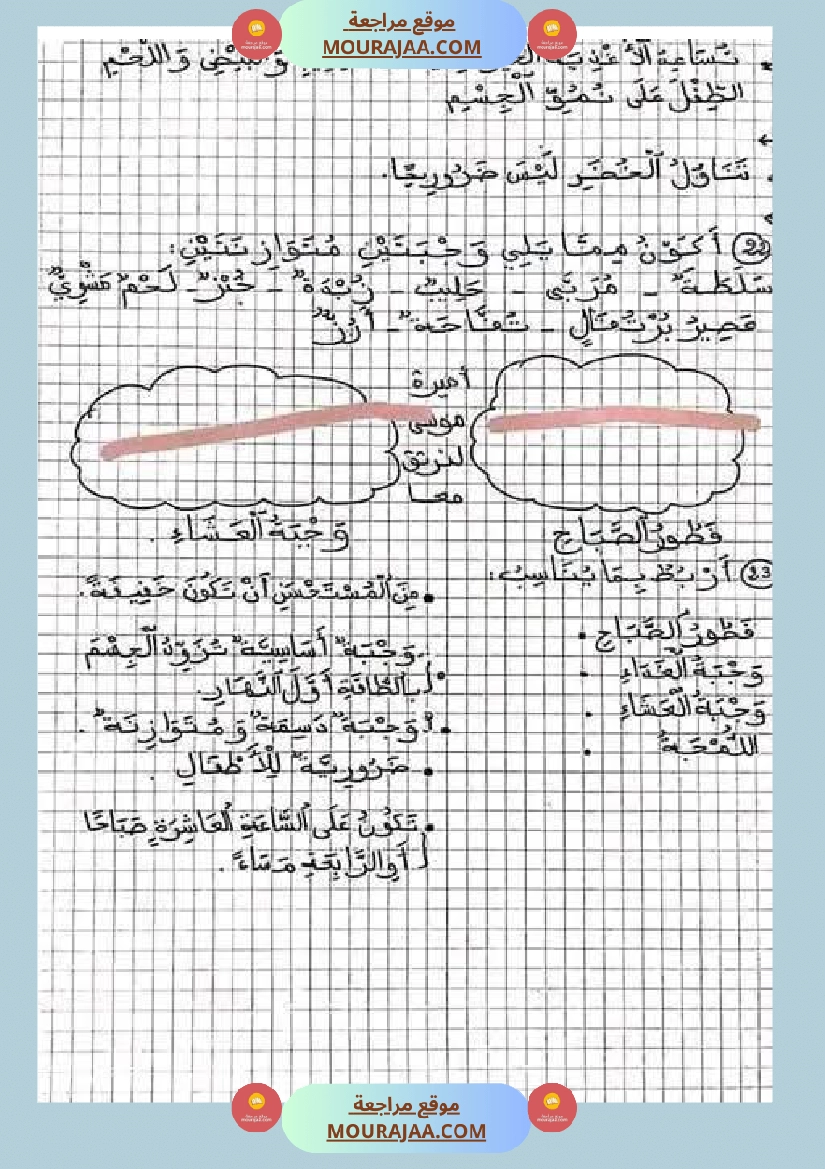 موقع مراجعة
MOURAJAA.COM
تُسَاعِدُ الْأَغْذِيَةُ وَاللَّحْمِ
الطِّفْلَ عَلَى نُمُوِّ الْجِسْمِ
تَنَاوُلُ الْخُضَرِ لَيْسَ ضَرُورِيًّا.
22 أُكَوِّنُ مِمَّا يَلِي وَجْبَتَيْنِ مُتَوَازِنَتَيْنِ:
سَلَطَةٌ - مُرَبَّى - حَلِيبٌ - زُبْدَةٌ - خُبْزٌ - لَحْمٌ مَشْوِيٌّ
عَصِيرُ بُرْتُقَالٍ - تُفَّاحَةٌ - أُرُزٌّ
أميرة
موسى
لنرتق
معا
فَطُورُ الصَّبَاحِ
وَجْبَةُ الْعَشَاءِ.
23 أَرْبُطُ بِمَا يُنَاسِبُ:
فَطُورُ الصَّبَاحِ •
وَجْبَةُ الْغَدَاءِ •
وَجْبَةُ الْعَشَاءِ •
اللُّمْجَةُ •
• مِنَ الْمُسْتَحْسَنِ أَنْ تَكُونَ خَفِيفَةً.
• وَجْبَةٌ أَسَاسِيَّةٌ تُزَوِّدُ الْجِسْمَ
بِالطَّاقَةِ أَوَّلَ النَّهَارِ.
• وَجْبَةٌ دَسِمَةٌ وَمُتَوَازِنَةٌ.
• ضَرُورِيَّةٌ لِلْأَطْفَالِ.
• تَكُونُ عَلَى السَّاعَةِ الْعَاشِرَةِ صَبَاحًا
أَوِ الرَّابِعَةِ مَسَاءً.
موقع مراجعة
MOURAJAA.COM